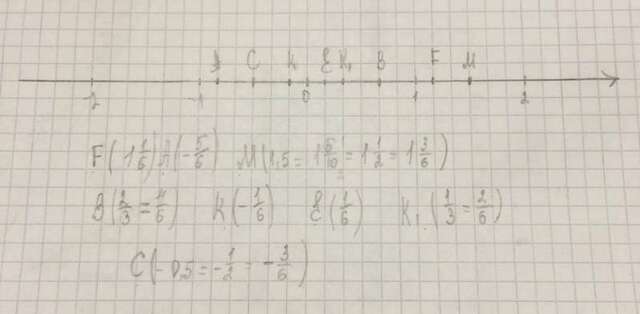 A C K 0 E K₁ B F M
-2 -1 0 1 2
F(1 1/6) A(-5/6) M(1,5 = 1 5/10 = 1 1/2 = 1 3/6)
B(2/3 = 4/6) K(-1/6) E(1/6) K₁(1/3 = 2/6)
C(-0,5 = -1/2 = -3/6)